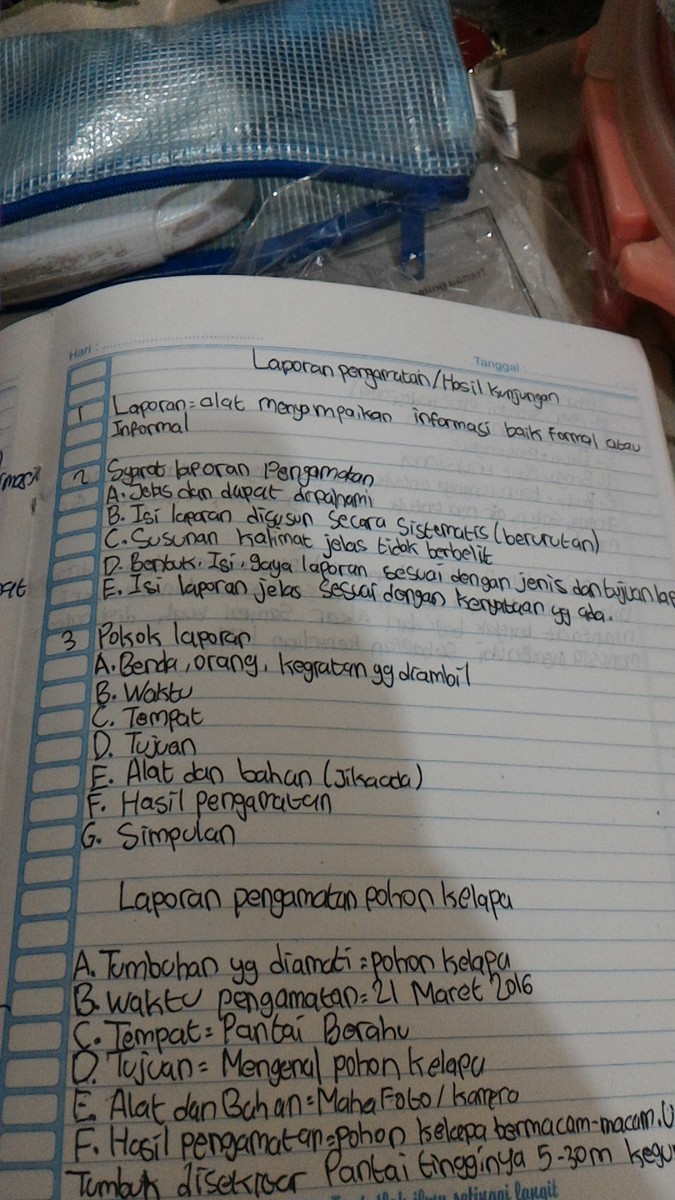 aling benar!
Hari :
Tanggal
Laporan pengamatan/Hasil Kunjungan
1 Laporan = alat menyampaikan informasi baik formal atau
Informal
2 Syarat laporan Pengamatan
A. Jelas dan dapat dipahami
B. Isi laporan disusun secara sistematis (berurutan)
C. Susunan kalimat jelas tidak berbelit
D. Bentuk, Isi, gaya laporan sesuai dengan jenis dan tujuan lap
E. Isi laporan jelas sesuai dengan kenyataan yg ada.
3 Pokok laporan
A. Benda, orang, kegiatan yg diambil
B. Waktu
C. Tempat
D. Tujuan
E. Alat dan bahan (Jika ada)
F. Hasil pengamatan
G. Simpulan
Laporan pengamatan pohon kelapa
A. Tumbuhan yg diamati = pohon kelapa
B. Waktu pengamatan = 21 Maret 2016
C. Tempat = Pantai Berahu
D. Tujuan = Mengenal pohon kelapa
E. Alat dan Bahan = Foto / kamera
F. Hasil pengamatan = pohon kelapa bermacam-macam.
Tumbuh disekitar Pantai tingginya 5-30m kegu
setinggi langit